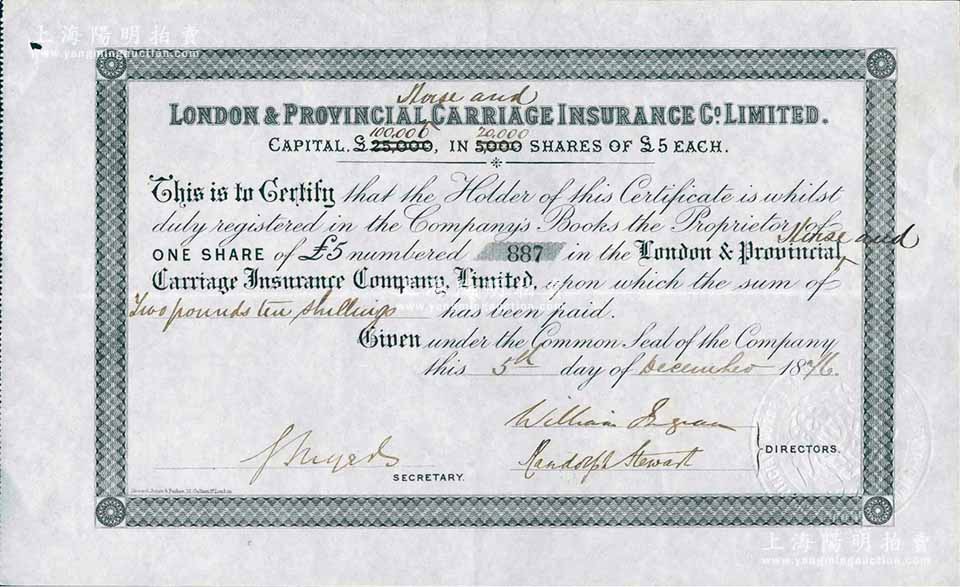 上海陽明拍賣
www.yangmingauction.com
Horse and
LONDON & PROVINCIAL CARRIAGE INSURANCE Co. LIMITED.
100,000 20,000
CAPITAL. £25,000, IN 5,000 SHARES OF £5 EACH.
This is to Certify that the Holder of this Certificate is whilst
duly registered in the Company's Books the Proprietor of
Horse and
ONE SHARE of £5 numbered 887 in the London & Provincial
Carriage Insurance Company, Limited, upon which the sum of
Two pounds ten shillings has been paid.
Given under the Common Seal of the Company
this 5th day of December 1876.
William Ingram
Randolph Stewart
DIRECTORS.
SECRETARY.
上海陽明拍賣
www.yangmingauction.com